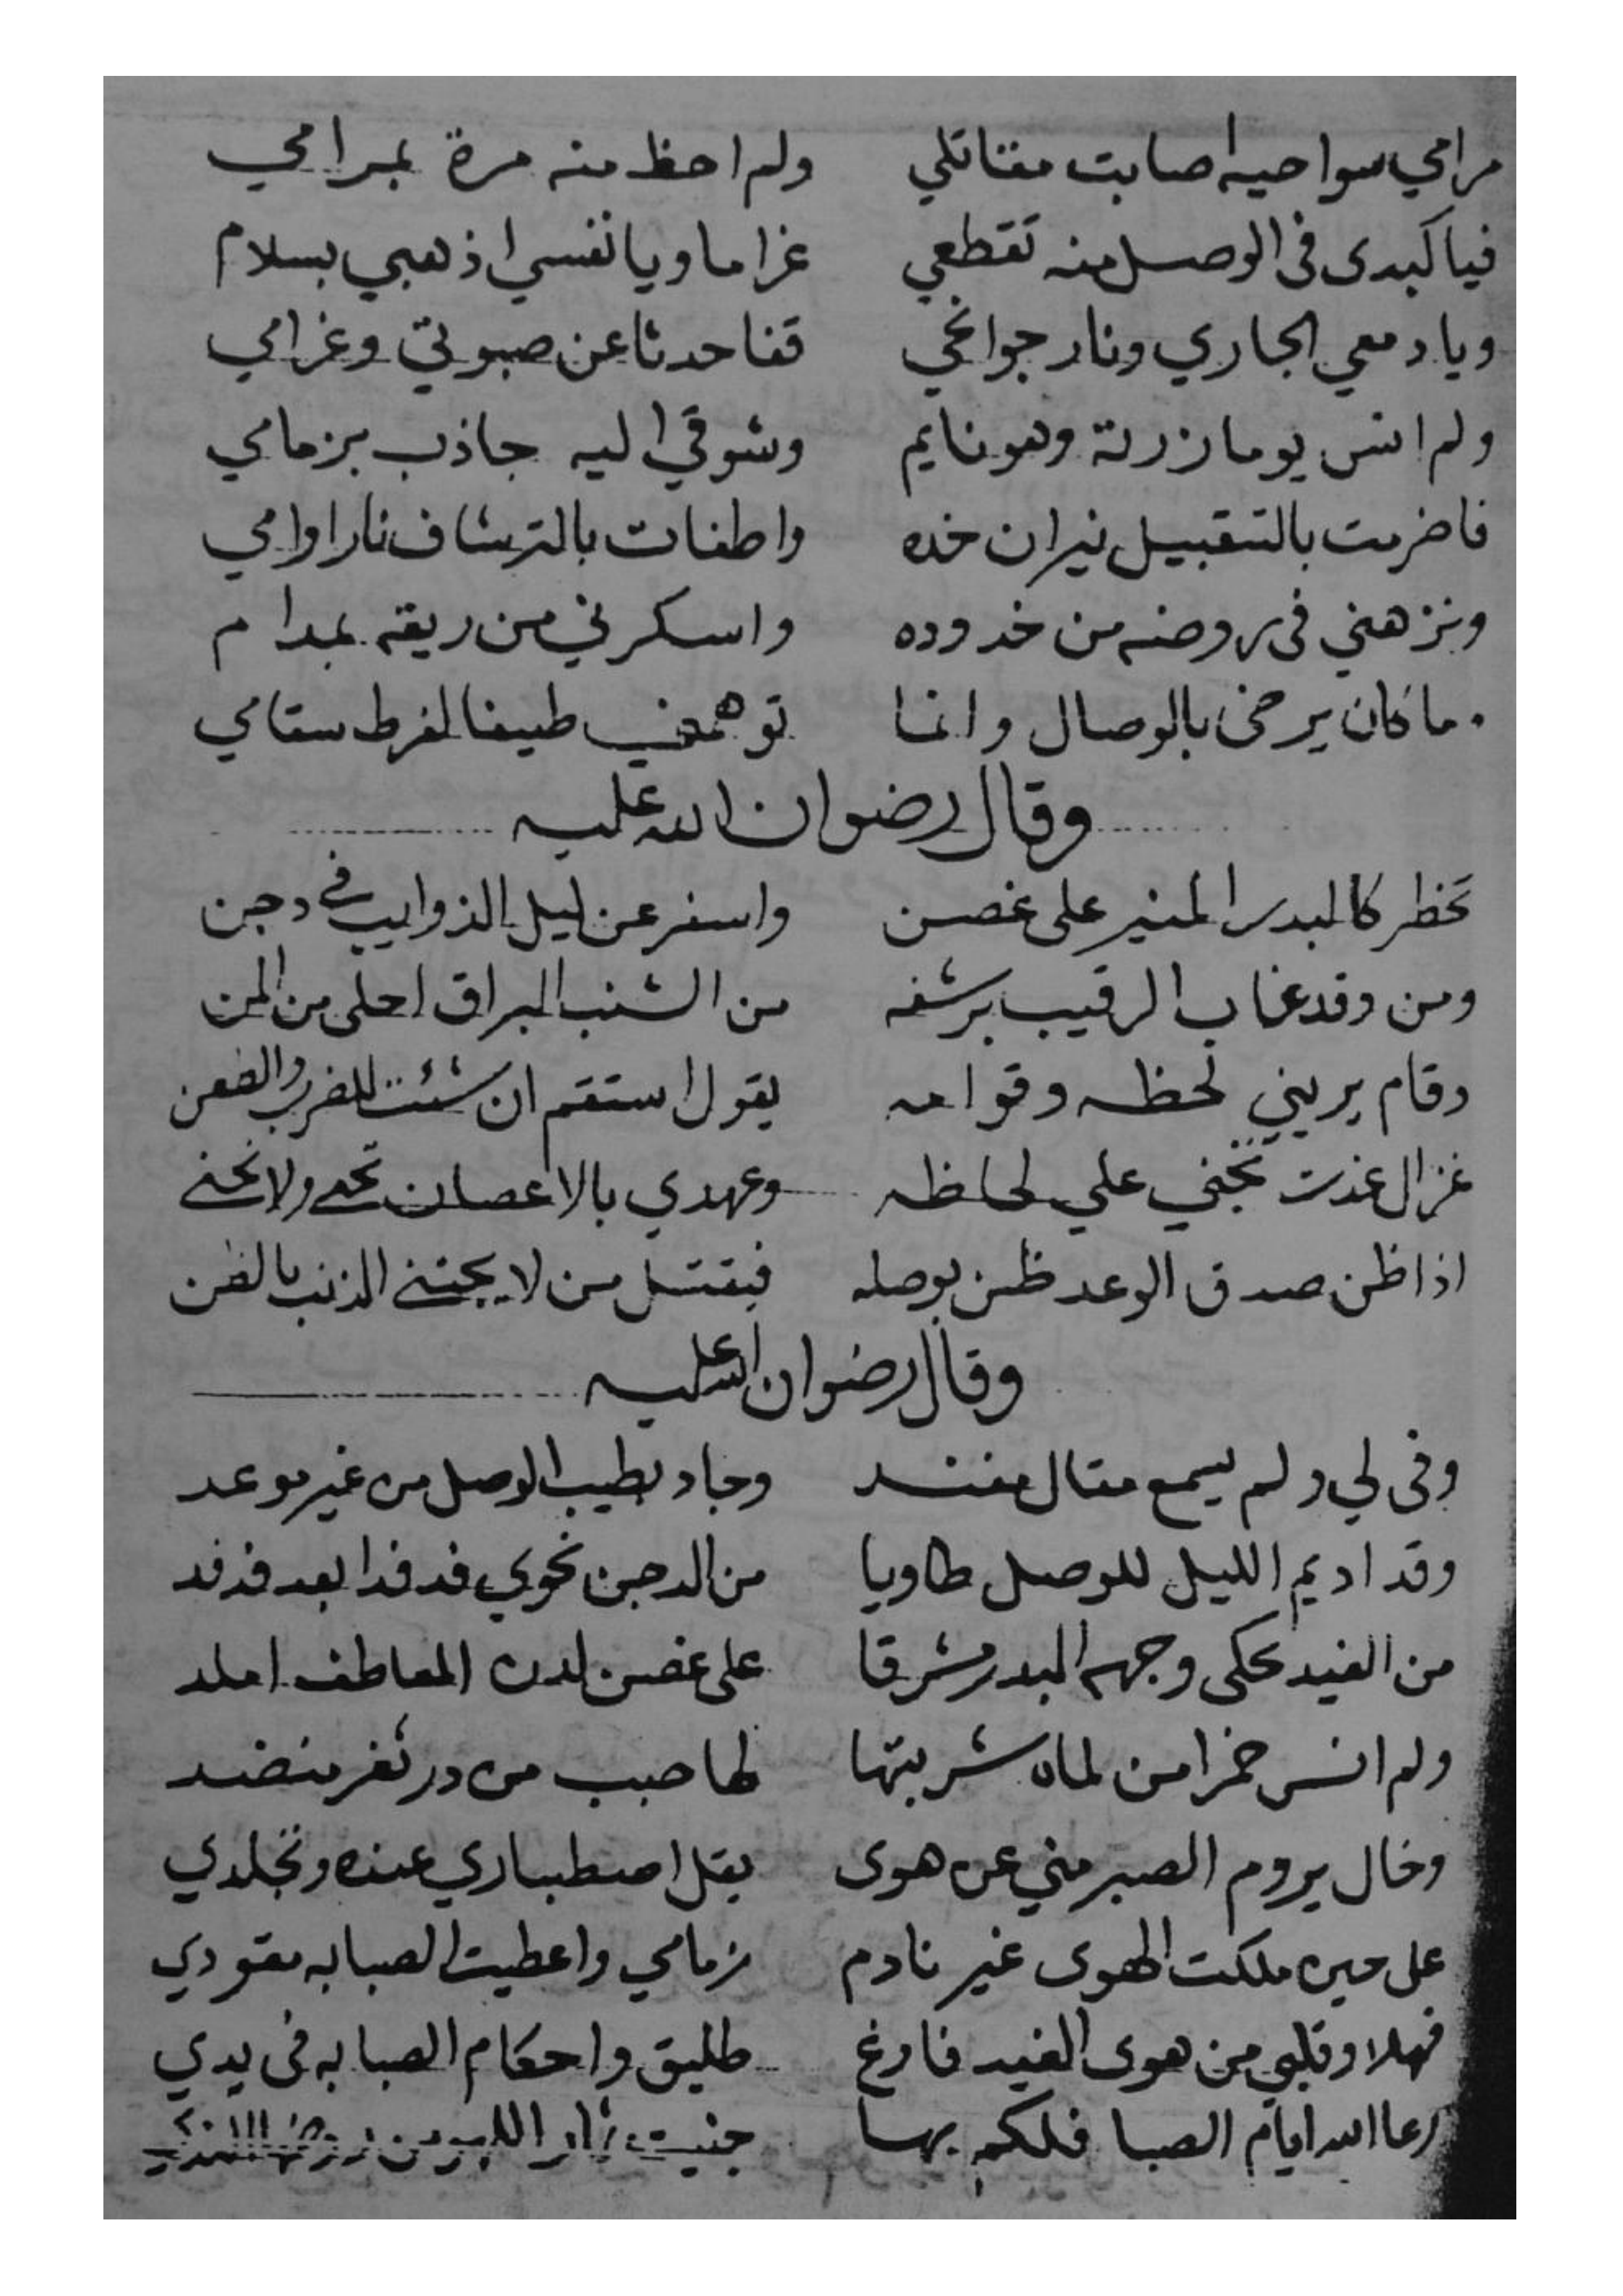 مرامي سواحيه اصابت مقاتلي ولم احظ منه مرة بمرامي
فياكبدى فى الوصل منه تقطعي غراما ويانفسي اذهبي بسلام
ويادمعي الجاري ونار جوانحي قفا حدثا عن صبوتي وغرامي
ولم انس يوما زرته وهو نايم وشوقي اليه جاذب بزمامي
فاضرمت بالتقبيل نيران خده واطفات بالترشاف نار اوامي
ونزهني فى روضه من خدوده واسكرني من ريقه بمدام
ما كان يرضى بالوصال وانما توهمني طيفا لفرط سقامي
وقال رضوان الله عليه
تخطر كالبدر المنير على غصن واسفر عن ليل الذوايب في دجن
ومن وقد غاب الرقيب برشفه من الشنب البراق احلى من المن
وقام يريني لحظه وقوامه يقول استقم ان شئت للضرب والطعن
غزال غدت تجني علي لحاظه وعهدي بالاغصان تجنى ولا تجني
اذا ظن صدق الوعد ظن بوصله فيقتل من لا يجتني الذنب بالظن
وقال رضوان الله عليه
وفى لي ولم يسمع مقال مفند وجاد بطيب الوصل من غير موعد
وقد اديم الليل للوصل طاويا من الدجن نحوي فدفدا بعد فدفد
من الغيد تحكى وجهه البدر مشرقا على غصن لدن المعاطف املد
ولم انس خمرا من لماه شربتها لها حبب من در ثغر منضد
وخال يروم الصبر مني عن هوى يقل اصطباري عنده وتجلدي
على حين ملكت الهوى غير نادم زمامي واعطيت الصبابه مقودي
فهلا وقلبي من هوى الغيد فارغ طليق واحكام الصبابه فى يدي
رعا الله ايام الصبا فلكم بها جنيت